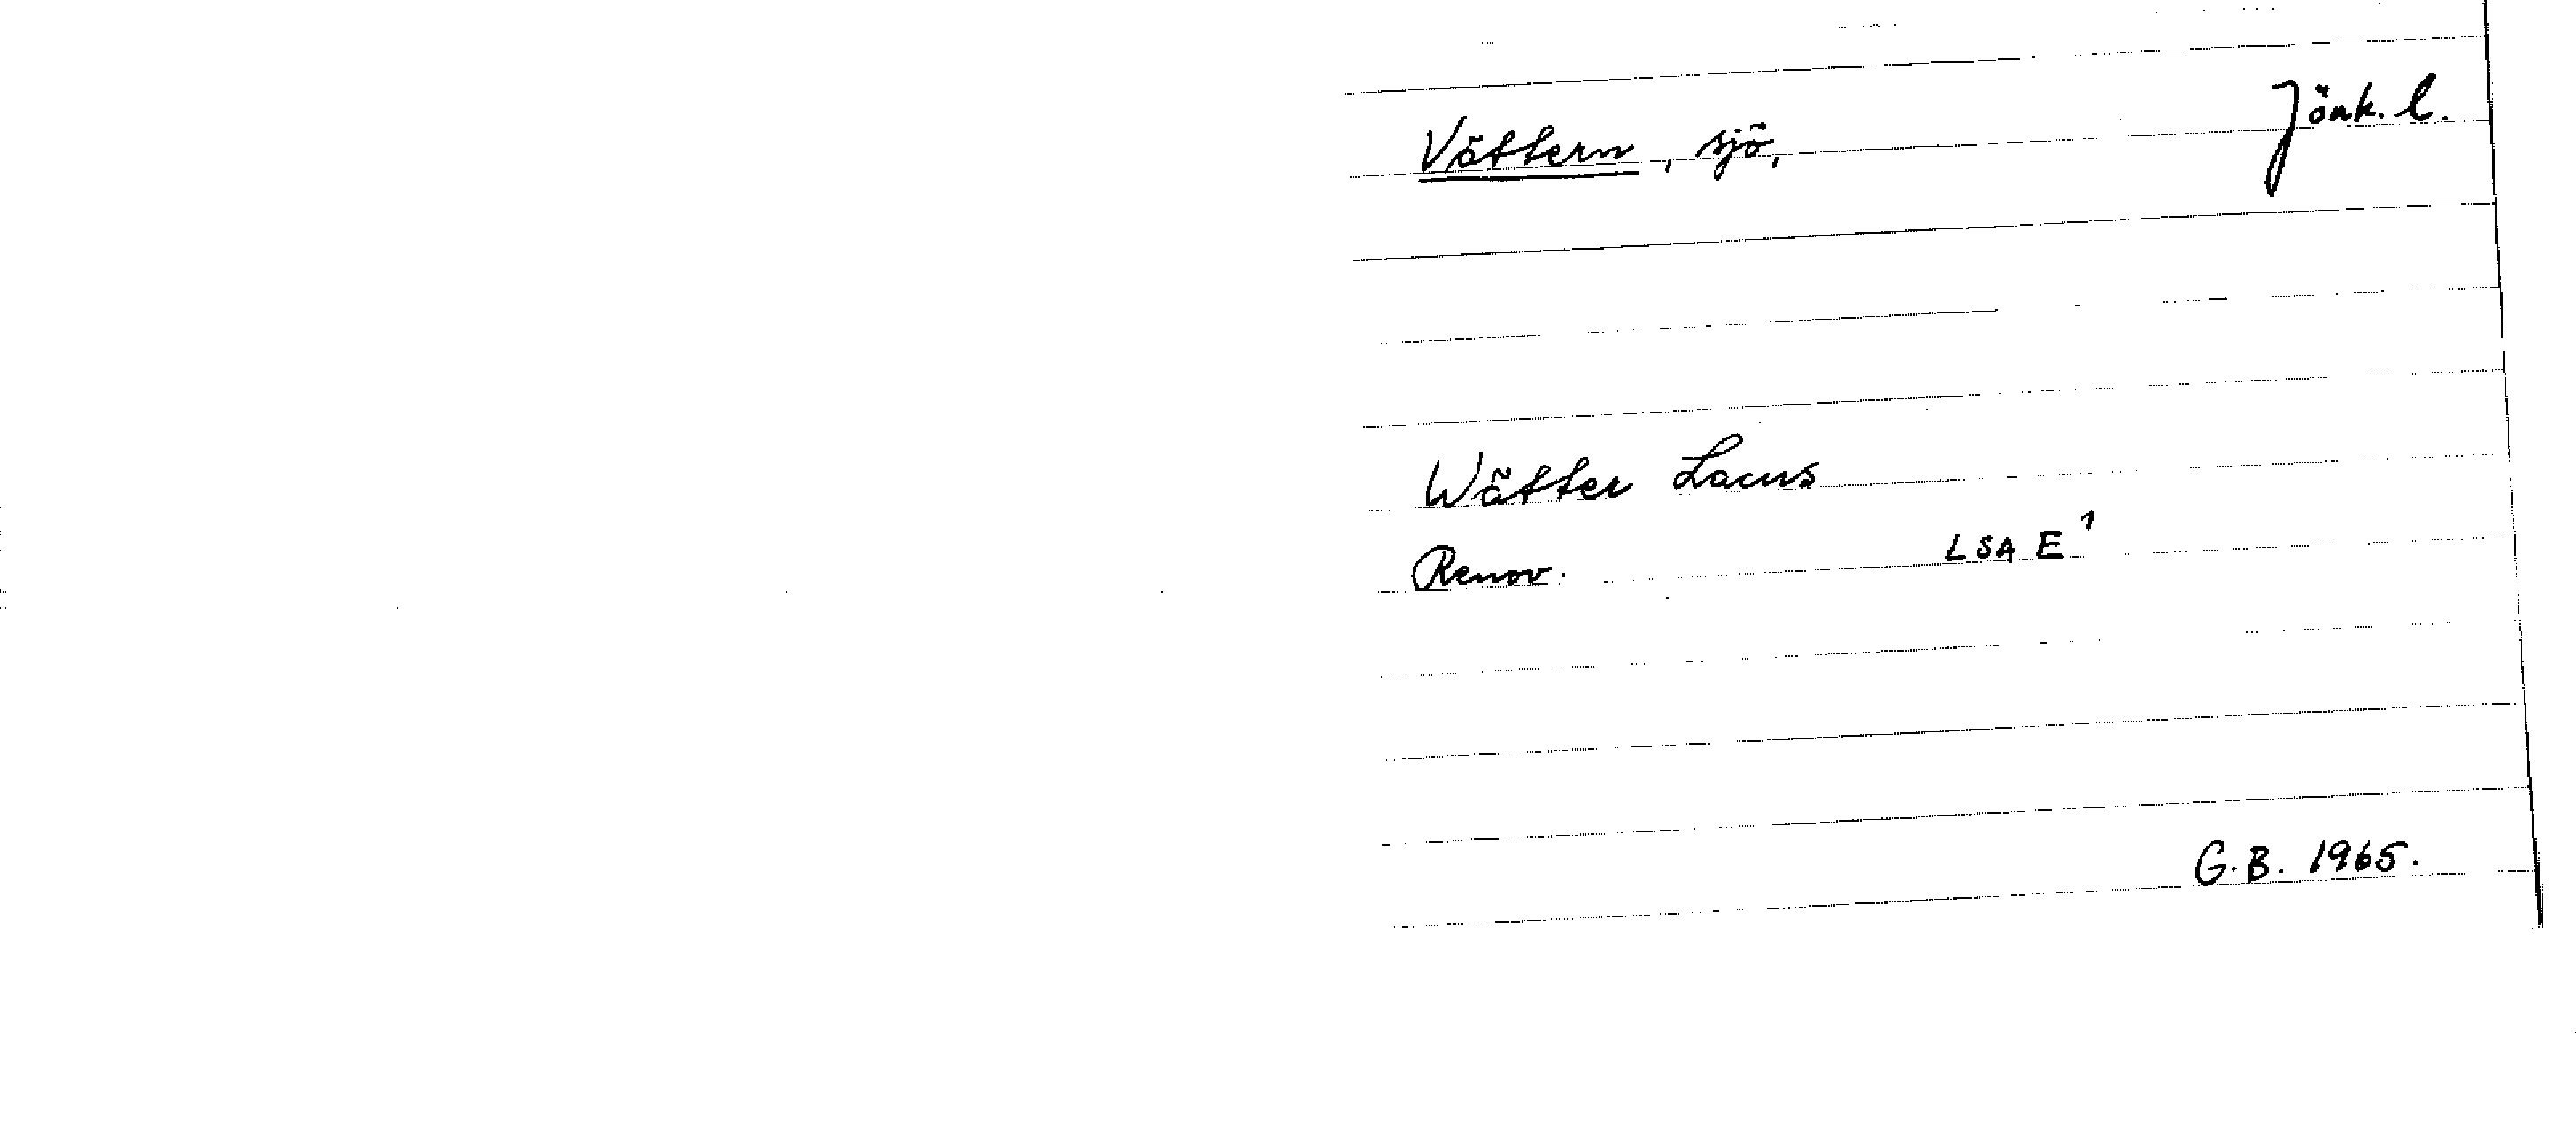 Vättern, sjö, Jönk. l.
Wätter Lacus
Renov. LSA E¹
G.B. 1965.